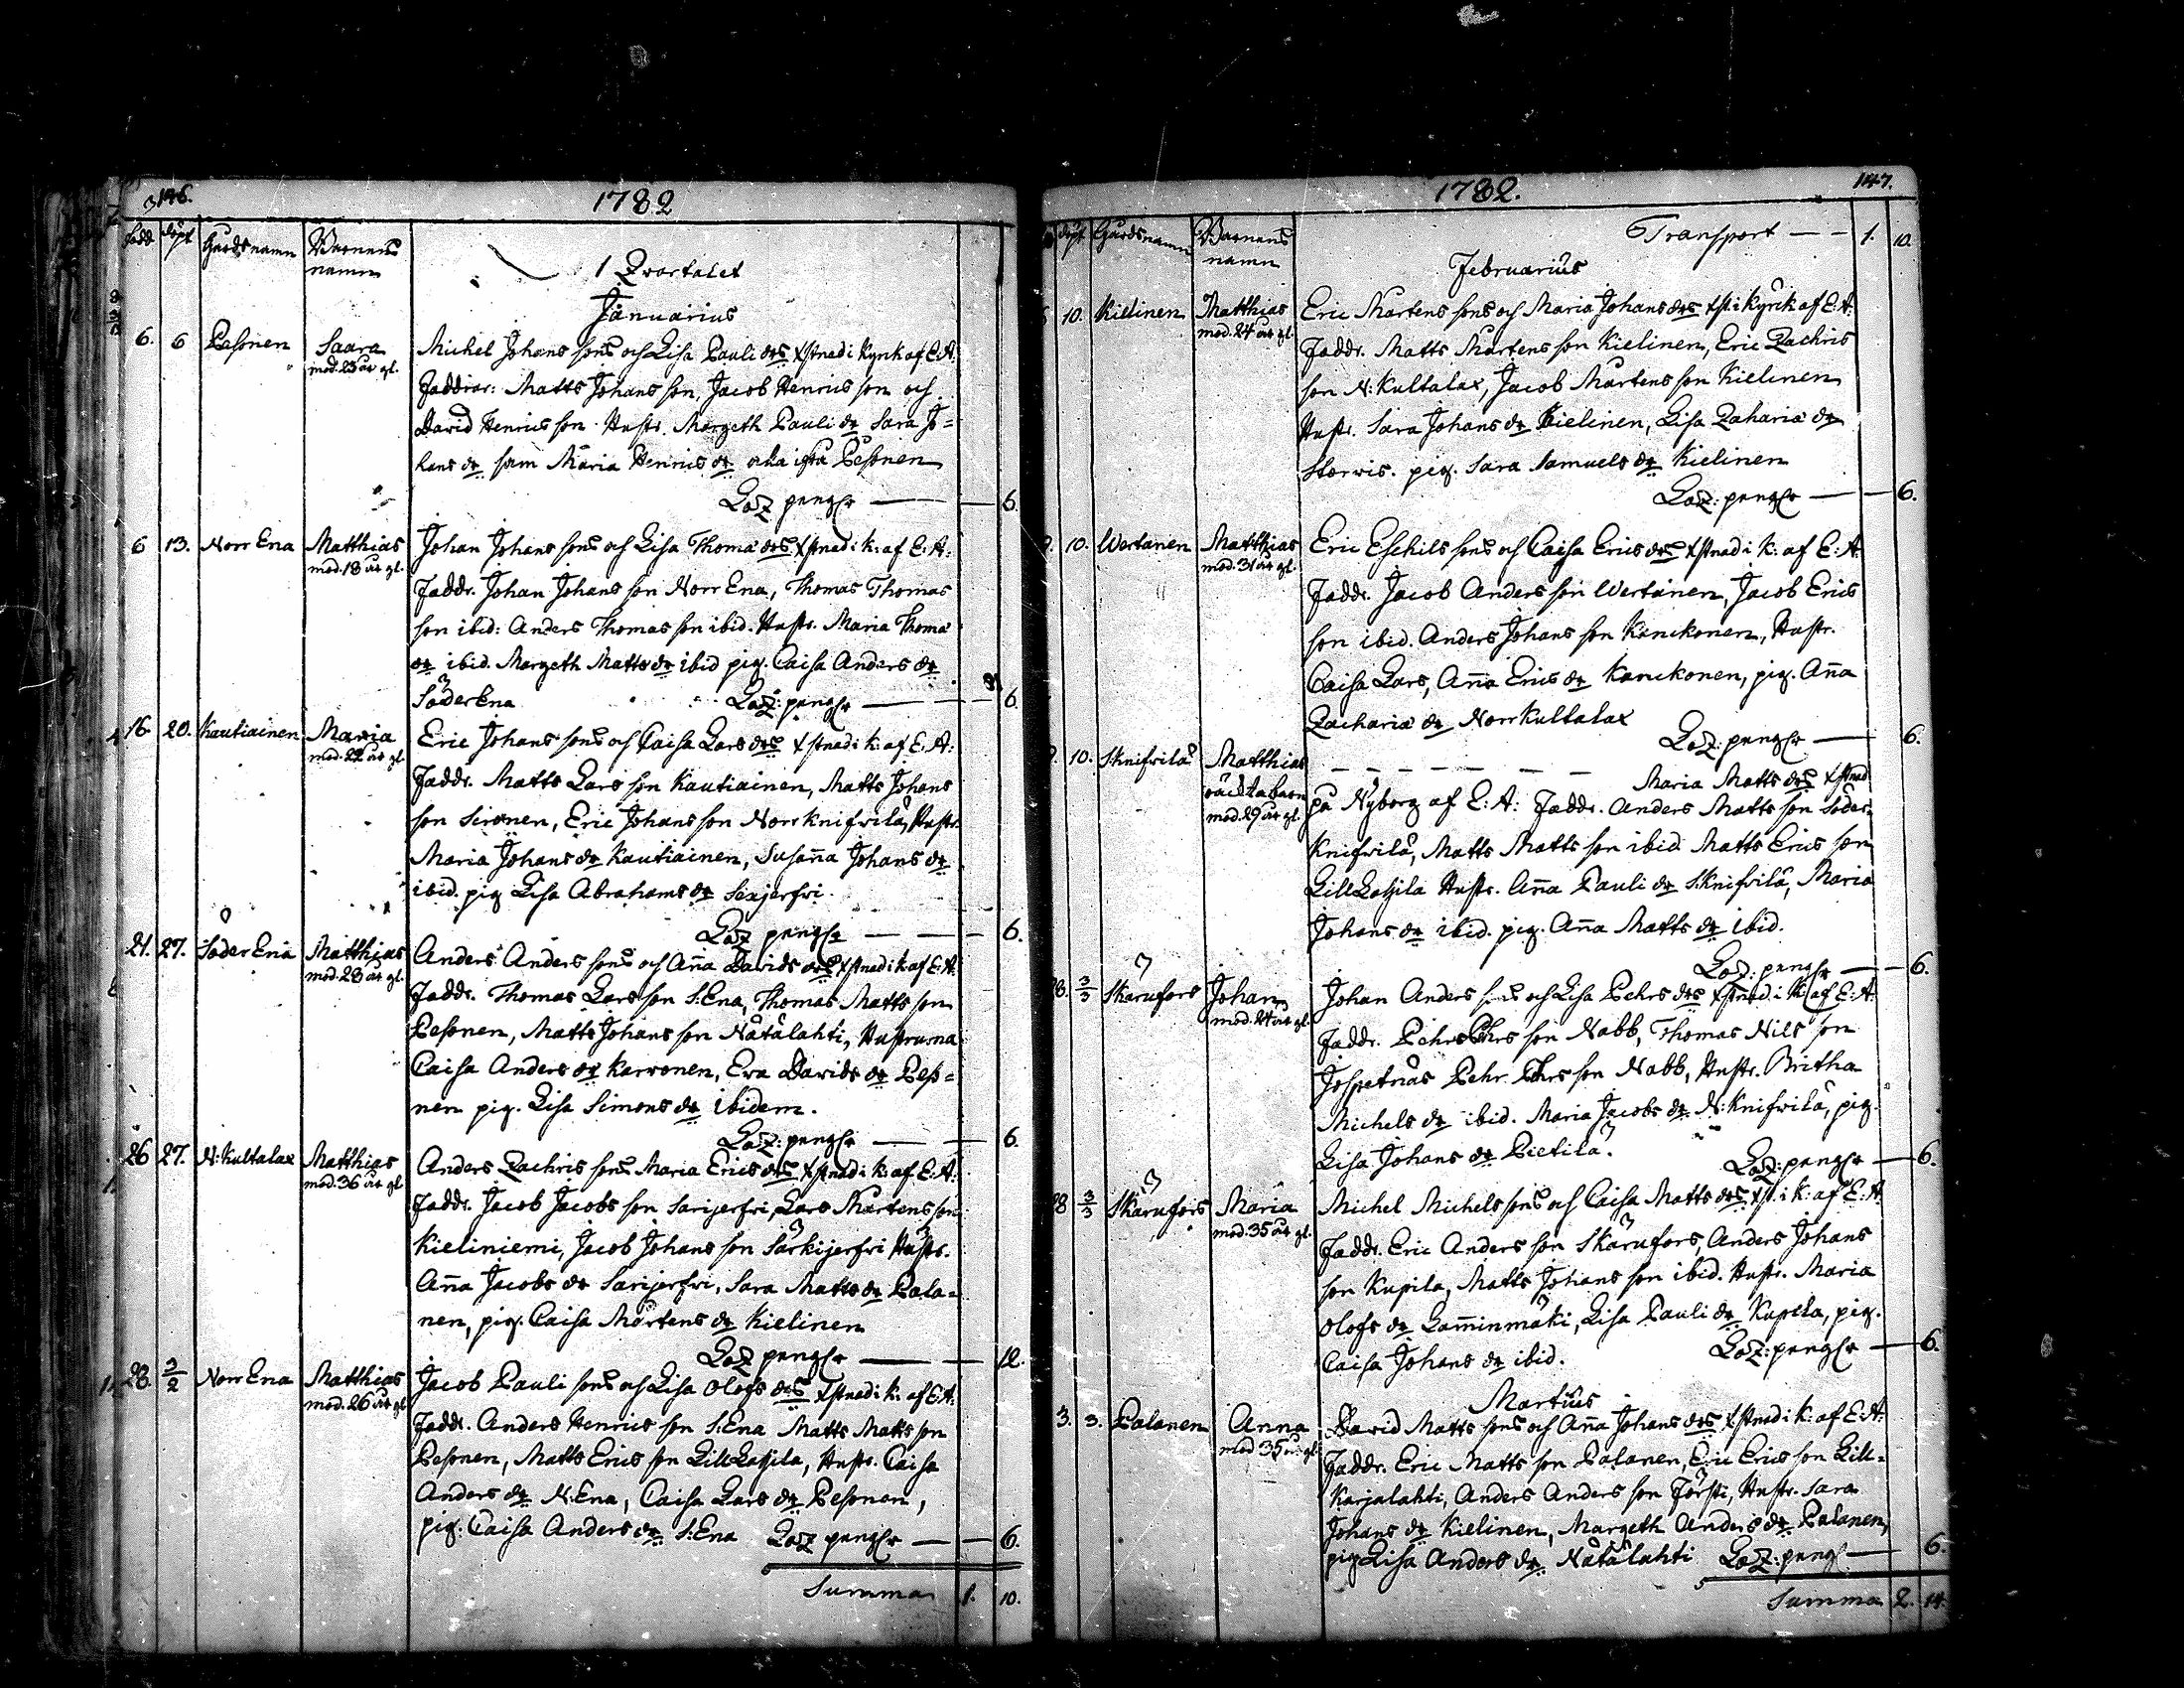 146.
1782
född döpt Gårds namn Barnens namn
1 Qvartalet
Januarius
6. 6 Pesonen Saara
mod. 23 år gl.
Michel Johans son och Lisa Pauli dr xstnad i kyrk af E: A.
Faddrar: Matts Johans son, Jacob Henrics son och
David Henrics son. Hustr. Margeth Pauli dr Sara Jo=
hans dr sam Maria Henrics dr alla ifrå Pesonen
Laz penger — 6.
6 13. Norr Ena Matthias
mod. 18 år gl.
Johan Johans son och Lisa Thomæ dr xstnad i k: af E: A:
Faddr. Johan Johans son Norr Ena, Thomas Thomas
son ibid: Anders Thomas son ibid. Hustr. Maria Thomæ
dr ibid. Margeth Matts dr ibid pig. Caisa Anders dr
Söder Ena Laz: penger — 6
16. 20. Kautiainen Maria
mod. 22 år gl.
Eric Johans son och Caisa Lars dr xstnad i k: af E: A:
Faddr. Matts Lars son Kautiainen, Matts Johans
son Sironen, Eric Johans son Norr Knifvilä, Hustr.
Maria Johans dr Kautiainen, Susaña Johans dr
ibid. pig Lisa Abrahams dr Sexjerfvi.
Laz penger — 6.
21. 27. Söder Ena Matthias
mod. 28 år gl.
Anders Anders son och Aña Davids dr xstnad i k: af E: A:
Faddr. Thomas Lars son S: Ena, Thomas Matts son
Pesonen, Matts Johans son Nätälahti, Hustruma
Caisa Anders dr Karvonen, Eva Davids dr Peso=
nen pig. Lisa Simons dr ibidem.
Laz: penger — 6
26 27. N: Kultalax Matthias
mod. 36 år gl.
Anders Zachris son Maria Erics dr xstnad i k: af E: A:
Faddr. Jacob Jacobs son Sarijerfvi, Lars Mårtens son
Kieliniemi, Jacob Johans son Särkijerfvi Hustr.
Aña Jacobs dr Sarijerfvi, Sara Matts dr Pala=
nen, pig. Caisa Mårtens dr Kielinen
Laz penger — 12.
28. 3/2 Norr Ena Matthias
mod. 26 år gl
Jacob Pauli son och Lisa Olofs dr xstnad i k: af E: A:
Faddr. Anders Henrics son S: Ena Matts Matts son
Pesonen, Matts Erics son Lill Latjila, Hustr. Caisa
Anders dr N: Ena, Caisa Lars dr Pesonen,
pig. Caisa Anders dr S: Ena Laz penger — 6.
Summa 1. 10.
147.
1782.
döpt Gårds namn Barnens namn
Transport — — 1. 10.
Februarius
10. Kielinen Matthias
mod. 24 år gl.
Eric Mårtens son och Maria Johans dr xst. i kyrk af E: A:
Faddr. Matts Mårtens son Kielinen, Eric Zachris
son N: Kultalax, Jacob Mårtens son Kielinen
Hustr. Sara Johans dr Kielinen, Lisa Zachariæ dr
pig. Sara Samuels dr Kielinen
Laz: penger — 6.
9. 10. Wertanen Matthias
mod. 31 år gl.
Eric Eschils son och Caisa Erics dr xstnad i k: af E: A:
Faddr. Jacob Anders son Wertänen, Jacob Erics
son ibid. Anders Johans son Kanckonen, Hustr.
Caisa Lars, Aña Erics dr Kanckonen, pig. Aña
Zachariæ dr Norr Kultalax
Laz: penger — 6.
9. 10. S: Knifvilä Matthias
oäckta barn
mod. 29 år gl.
— — — — — — Maria Matts dr xstnad
på Nyborg af E: A: Faddr. Anders Matts son Söder=
Knifvilä, Matts Matts son ibid Matts Erics son
Lill Latjila Hustr. Aña Pauli dr S: Knifvilä, Maria
Johans dr ibid. pig. Aña Matts dr ibid.
Laz: penger — 6.
28. 3/3 Skarufors Johan
mod. 24 år gl
Johan Anders son och Lisa Pehrs dr xstnad i k: af E: A:
Faddr. Pehr Pehrs son Nabb, Thomas Nils son
Pehr Pehrs son Nabb, Hustr. Britha
Michels dr ibid. Maria Jacobs dr N: Knifvilä, pig.
Lisa Johans dr Pietilä.
Laz: penger — 6.
28 3/3 Skarufors Maria
mod. 35 år gl.
Michel Michels son och Caisa Matts dr xst. i k: af E: A:
Faddr. Eric Anders son Skarufors, Anders Johans
son Kupila, Matts Johans son ibid. Hustr. Maria
Olofs dr Lam̃inmäki, Lisa Pauli dr Kupila, pig.
Caisa Johans dr ibid. Laz: penger — 6.
Martius
3. 3. Palanen Anna
mod 35 år gl
David Matts son och Aña Johans dr xstnad i k: af E: A:
Faddr. Eric Matts son Palanen, Eric Erics son Lill=
Karjalahti, Anders Anders son Försti, Hustr. Sara
Johans dr Kielinen, Margeth Anders dr Palanen,
pig Lisa Anders dr Nätälahti Laz: peng — 6.
Summa 2. 14.